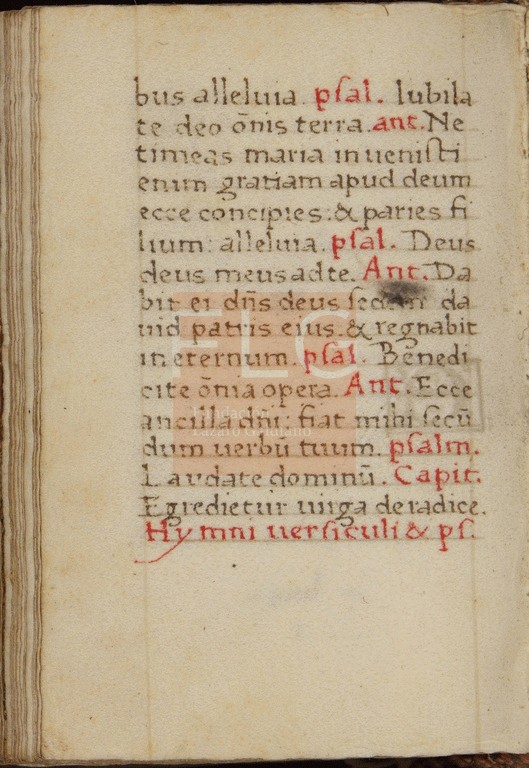 bus alleluia. psal. Iubila
te deo oīnis terra. ant. Ne
timeas maria inuenisti
enim gratiam apud deum
ecce concipies: & paries fi
lium: alleluia. psal. Deus
deus meus ad te. Ant. Da
bit ei dn̄s deus sedem da
uid patris eius. & regnabit
in eternum. psal. Benedi
cite oīnia opera. Ant. Ecce
ancilla dn̄i: fiat mihi secū
dum uerbū tuum. psalm.
Laudate dominū. Capit.
Egredietur uirga de radice.
Hymni uersiculi & ps.
FLG
Fundación
Lázaro Galdiano